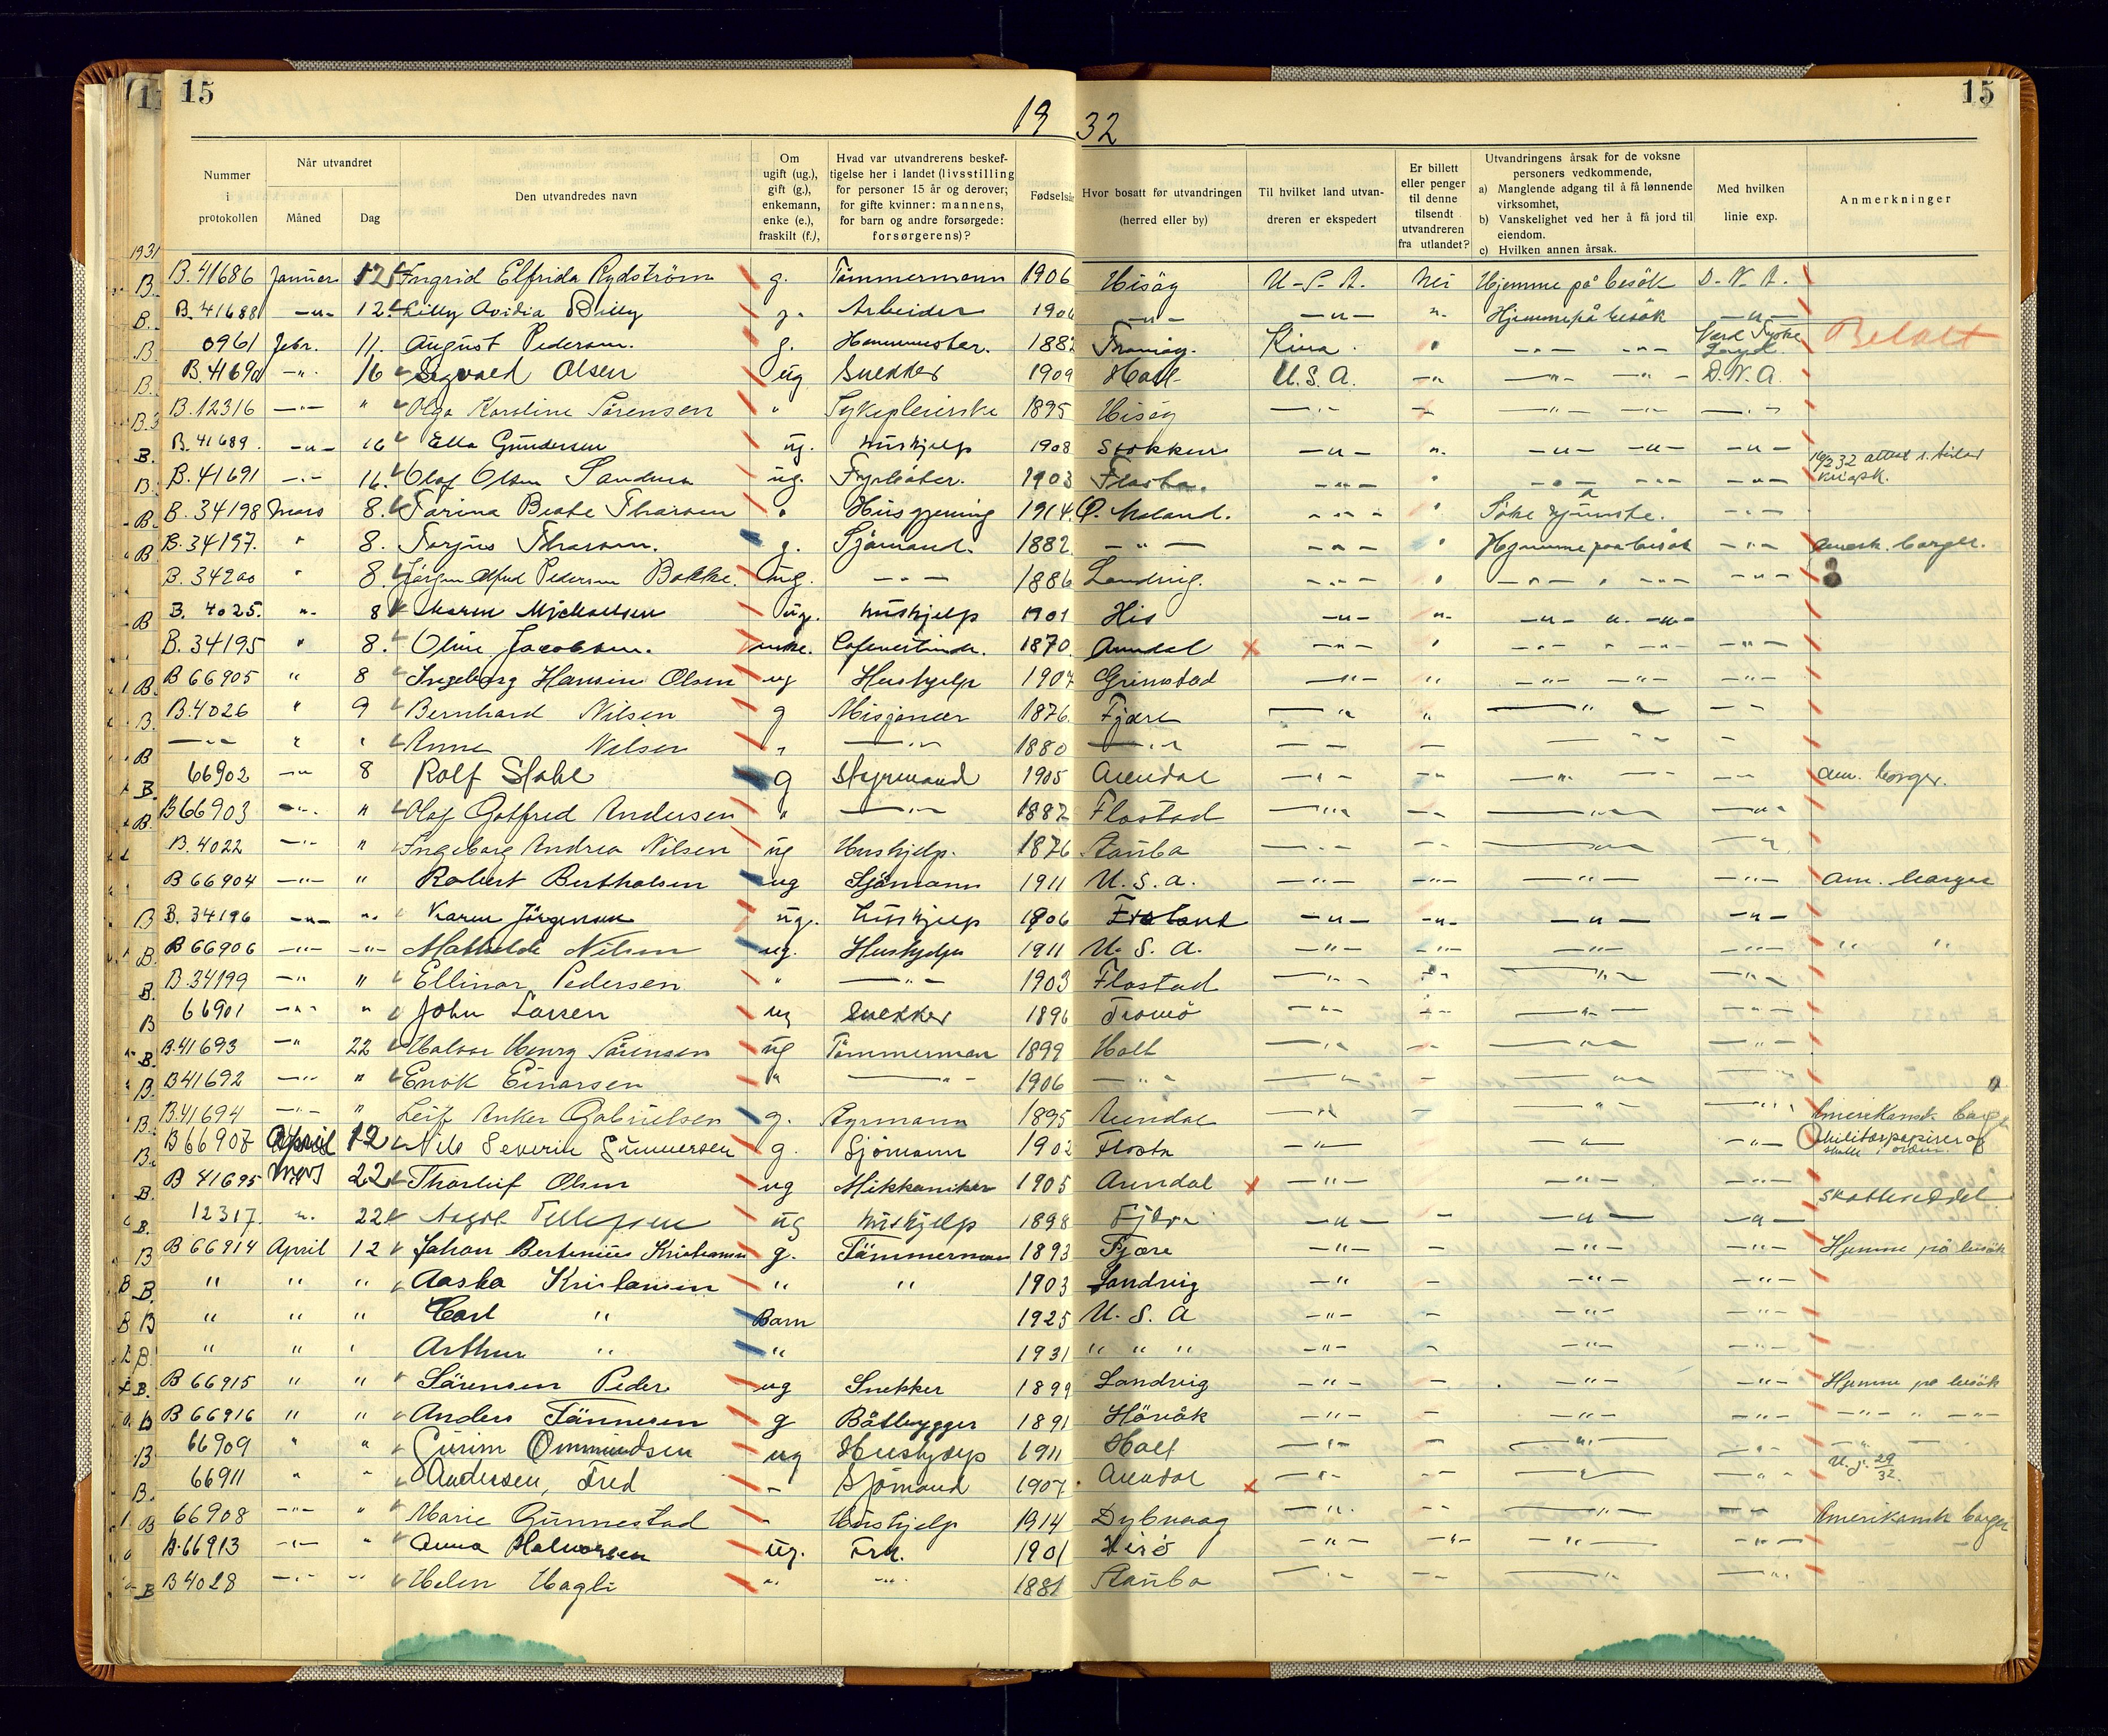 15
15
19 32
Nummer i protokollen
Når utvandret
Måned
Dag
Den utvandredes navn
Om ugift (ug.), gift (g.), enkemann, enke (e.), fraskilt (f.),
Hvad var utvandrerens beskeftigelse her i landet (livsstilling for personer 15 år og derover; for gifte kvinner: mannens, for barn og andre forsørgede: forsørgerens)?
Fødselsår
Hvor bosatt før utvandringen (herred eller by)
Til hvilket land utvandreren er ekspedert
Er billett eller penger til denne tilsendt utvandreren fra utlandet?
Utvandringens årsak for de voksne personers vedkommende,
a) Manglende adgang til å få lønnende virksomhet,
b) Vanskelighet ved her å få jord til eiendom.
c) Hvilken annen årsak.
Med hvilken linie exp.
Anmerkninger
1931
B. B. 41686 Januar 12 Ingrid Elfrida Rydström g. Tömmermann 1906 Hisöy U.S.A. Nei Hjemme på besök D.N.A.
B. B. 41688 -"- 12 Lilly Ovidia Billy g. Arbeider 1906 -"- -"- " Hjemme på besök -"-
B. 0961 Febr. 11. August Pedersen. g. 1882 Tromöy. Kina. " -"- -"- Betalt
B. B. 41690 -"- 16 Sigvald Olsen ug Snekker 1909 Holt U.S.A. -"- -"- -"- D.N.A.
B. 12316 -"- " Olga Karoline Sörensen " Sykepleierske 1895 Hisöy -"- -"- -"- -"-
B. B. 41689. -"- 16 Ella Gundersen ug. Hushjelp 1908 Stokken -"- " -"- -"- -"-
B. B. 41691 -"- 16. Olaf Olsen ug. Fyrböter. 1903 Flosta. -"- " -"- -"- -"-
B. B. 34198 Mars 8. Beate " 1914. Ö. Moland. -"- " Söke -"-
B B. 34197. " 8. g. Sjömand. 1882 -"- -"- " Hjemme paa besök -"- Amerk. borger.
B. 34200 " 8. Jörgen Alfred Pedersen Bakke. ug. -"- 1886 Landvig. -"- " -"- " -"- -"-
B B. 4025. " 8 Maren Michaelsen ug. Hushjelp 1901 His -"- " -"- " -"-
B. 34195 " 8. Oline Jacobsen. enke. 1870. Arendal x -"- " -"- " -"- -"-
B. B 66905 " 8 Ingeborg Hansine Olsen ug Hushjelp 1907 Grimstad -"- " -"- -"- -"-
B. B. 4026 " 9 Bernhard Nilsen g Misjonær 1876. Fjære -"- " -"- -"-
B -"- " " Anna Nilsen " -"- 1880 -"- -"- - -"- -"-
B. 66902 -"- 8 Rolf Stahl g Styrmand 1905 Arendal -"- -"- -"- -"- -"- am. borger.
B. B 66903 -"- " Olaf Gotfred Andersen " -"- 1882 Flostad -"- -"- -"- -"-
B. 4022 -"- " Ingeborg Andrea Nilsen ug Hushjelp. 1876 Staubø -"- - -"- -"-
B 66904 -"- " Robert Bertholsen ug Sjömann 1911 U.S.A. -"- -"- -"- -"- am. borger
B B. 34196 -"- " Karen Jörgensen ug. Hushjelp 1906 Froland -"- -"- -"- -"-
B. B 66906 -"- -"- Mathilde Nilsen ug. Hushjelp 1911 U.S.A. -"- -"- -"- -"- " "
B. B. 34199 -"- " Ellinor Pedersen " -"- 1903 Flostad -"- -"- -"- -"-
B 66901 -"- " John Larsen ug Snekker 1896 Tromö -"- -"- -"- -"-
B. B. 41693 -"- 22 Halvor Henry Sörensen ug Tömmerman 1899 Holt -"- - -"- -"-
B. B 41692 -"- " Enok Einarsen " -"- 1906 -"- -"- - -"- -"-
B. B. 41694 -"- " Leif Anker Gabrielsen g. Styrmann 1895 Arendal -"- - -"- -"- Amerikansk borger
B. B 66907 April 12 Nils Severin Gunnersen g. Sjömann 1902 Flosta -"- -"- -"- Militærpapirer og skatt i orden.
B. B 41695 Mars 22 Thorleif Olsen ug Mikkaniker 1905 Arendal x -"- -"- -"- Skatteseddel
B. 12317. " 22 ug Hushjelp 1898 Fjære -"- - -"- -"-
B B 66914 April 12 Johan Bertinius Kristiansen g. Tömmerman 1893 Fjære -"- - -"- -"- Hjemme på besök
B B. " " " Aasta Kristiansen " " 1903 Landvig -"- - -"- -"-
B B " " " Carl " Barn 1925 U.S.A -"- - -"- -"-
B. " " " Arthur " " 1931 " " " -"- - -"- -"-
B. B 66915 " " Sörensen Peder ug Snekker 1899 Landvig -"- - -"- -"- Hjemme på besök
B B 66916 " " Anders Tönnesen g Båtbygger 1891 Hövåk -"- - -"- -"- -"- " -"-
B 66909 " " Gurine Ommundsen ug Hushjelp 1911 Holt -"- - -"- -"- -"-
B. 66911 " " Andersen, Fred - Sjömand 1907. Arendal x -"- - -"- -"-
B 66908 -"- " Marie Gunnestad - Hushjelp 1914 Dybvaag -"- -"- -"- -"- Amerikansk borger
B. 66913 -"- " Anna Halvorsen ug. Frk. 1901 Hisö -"- -"- -"- -"-
B B 4028 -"- -"- Helen Hagli " -"- 1881 Staubø -"- - -"- -"-